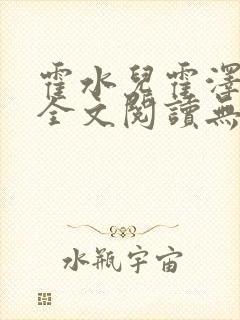 霍水兒霍澤
全文閱讀無
水瓶宇宙